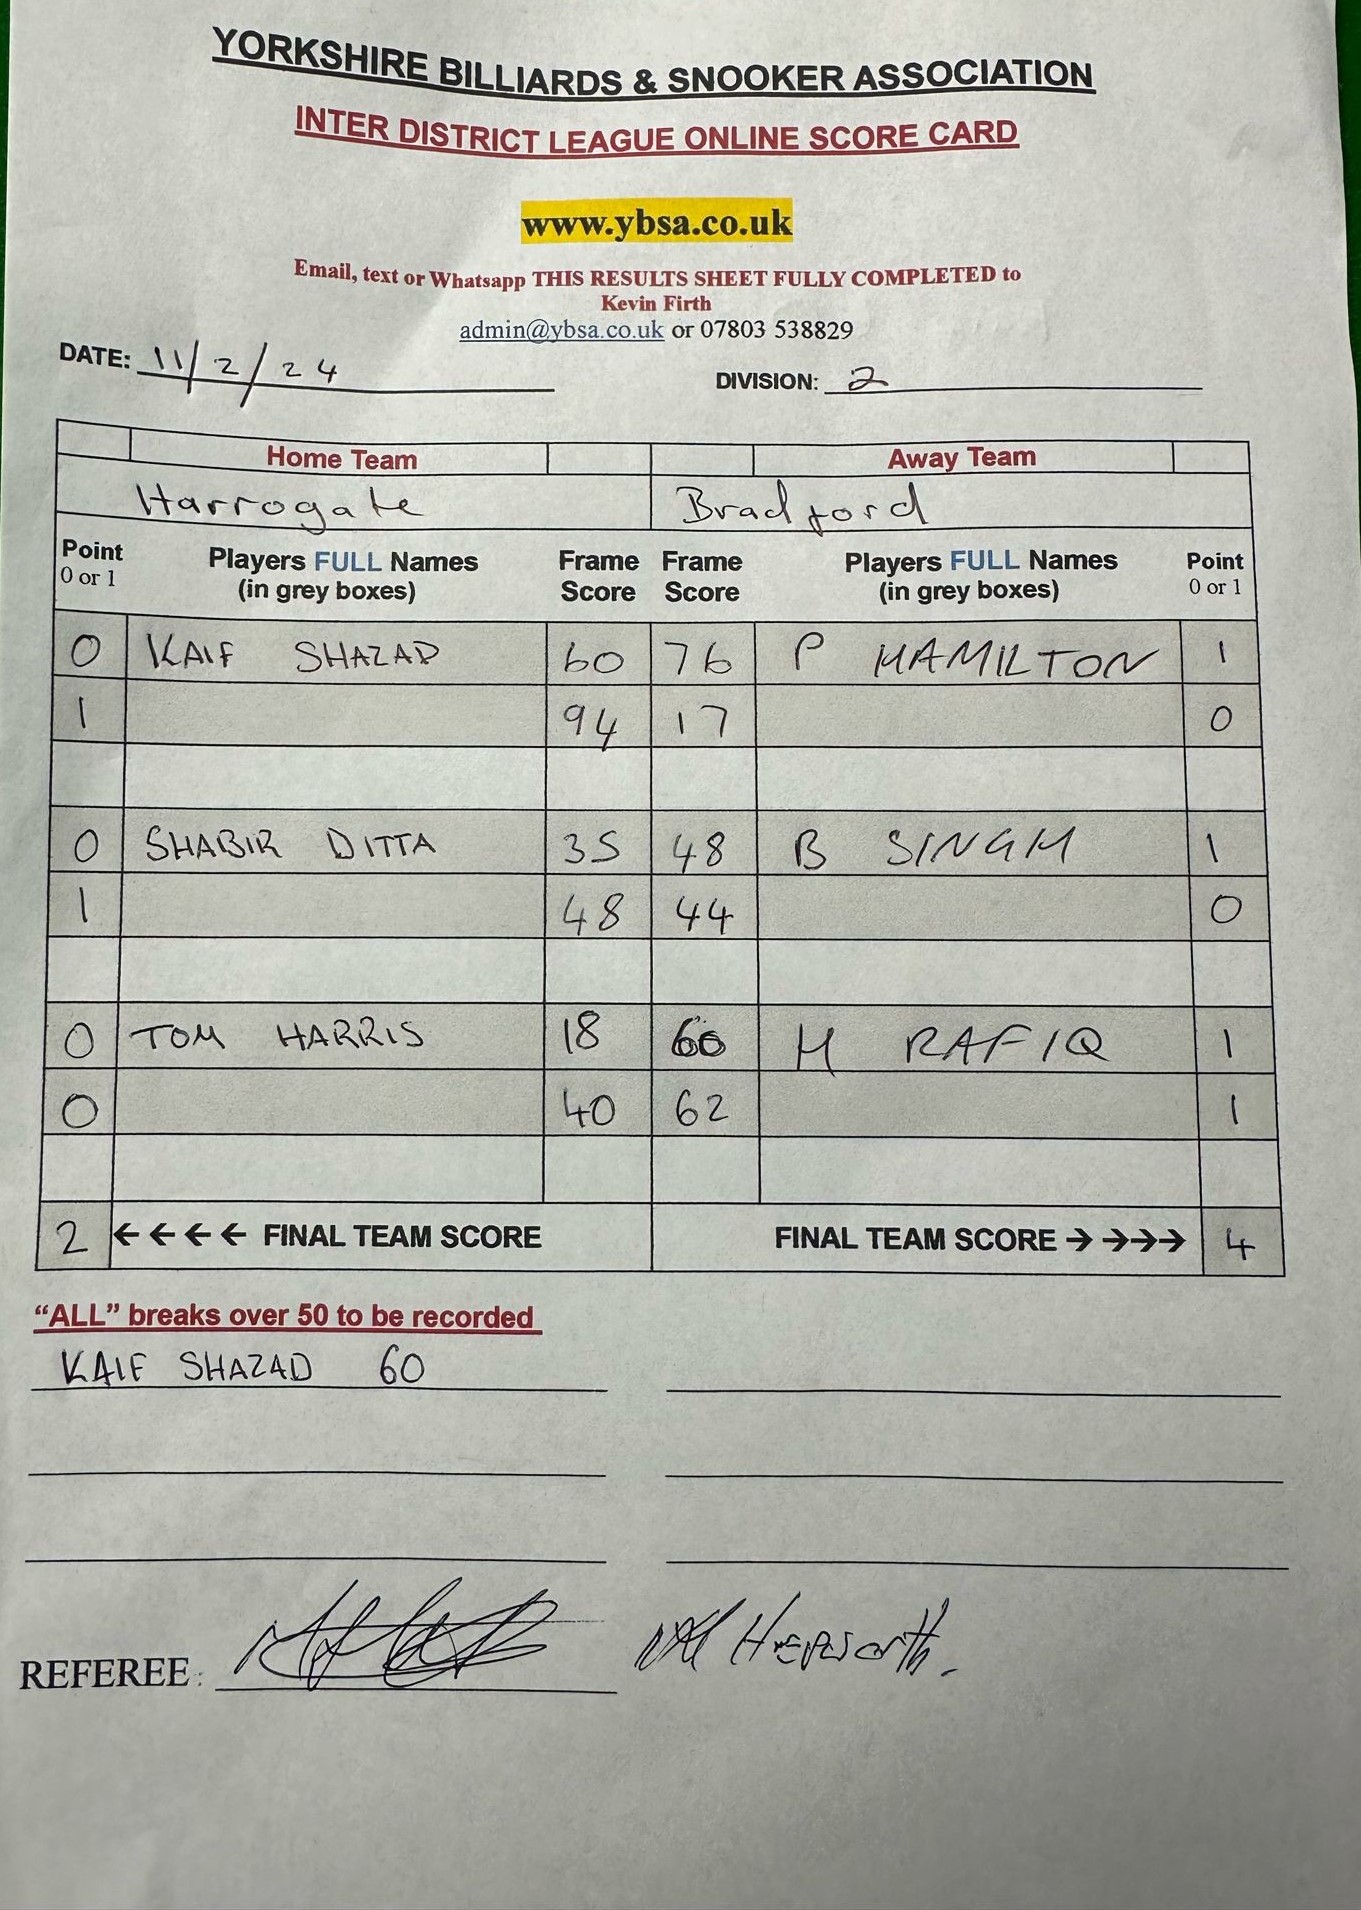 YORKSHIRE BILLIARDS & SNOOKER ASSOCIATION
INTER DISTRICT LEAGUE ONLINE SCORE CARD
www.ybsa.co.uk
Email, text or Whatsapp THIS RESULTS SHEET FULLY COMPLETED to
Kevin Firth
admin@ybsa.co.uk or 07803 538829
DATE: 11/2/24
DIVISION: 2
Home Team Away Team
Harrogate Bradford
Point Players FULL Names Frame Frame Players FULL Names Point
0 or 1 (in grey boxes) Score Score (in grey boxes) 0 or 1
0 KAIF SHAZAD 60 76 P HAMILTON 1
1 94 17 0
0 SHABIR DITTA 35 48 B SINGH 1
1 48 44 0
0 TOM HARRIS 18 60 H RAFIQ 1
0 40 62 1
2 ←←←← FINAL TEAM SCORE FINAL TEAM SCORE →→→→ 4
“ALL” breaks over 50 to be recorded
KAIF SHAZAD 60
REFEREE: Hepworth.